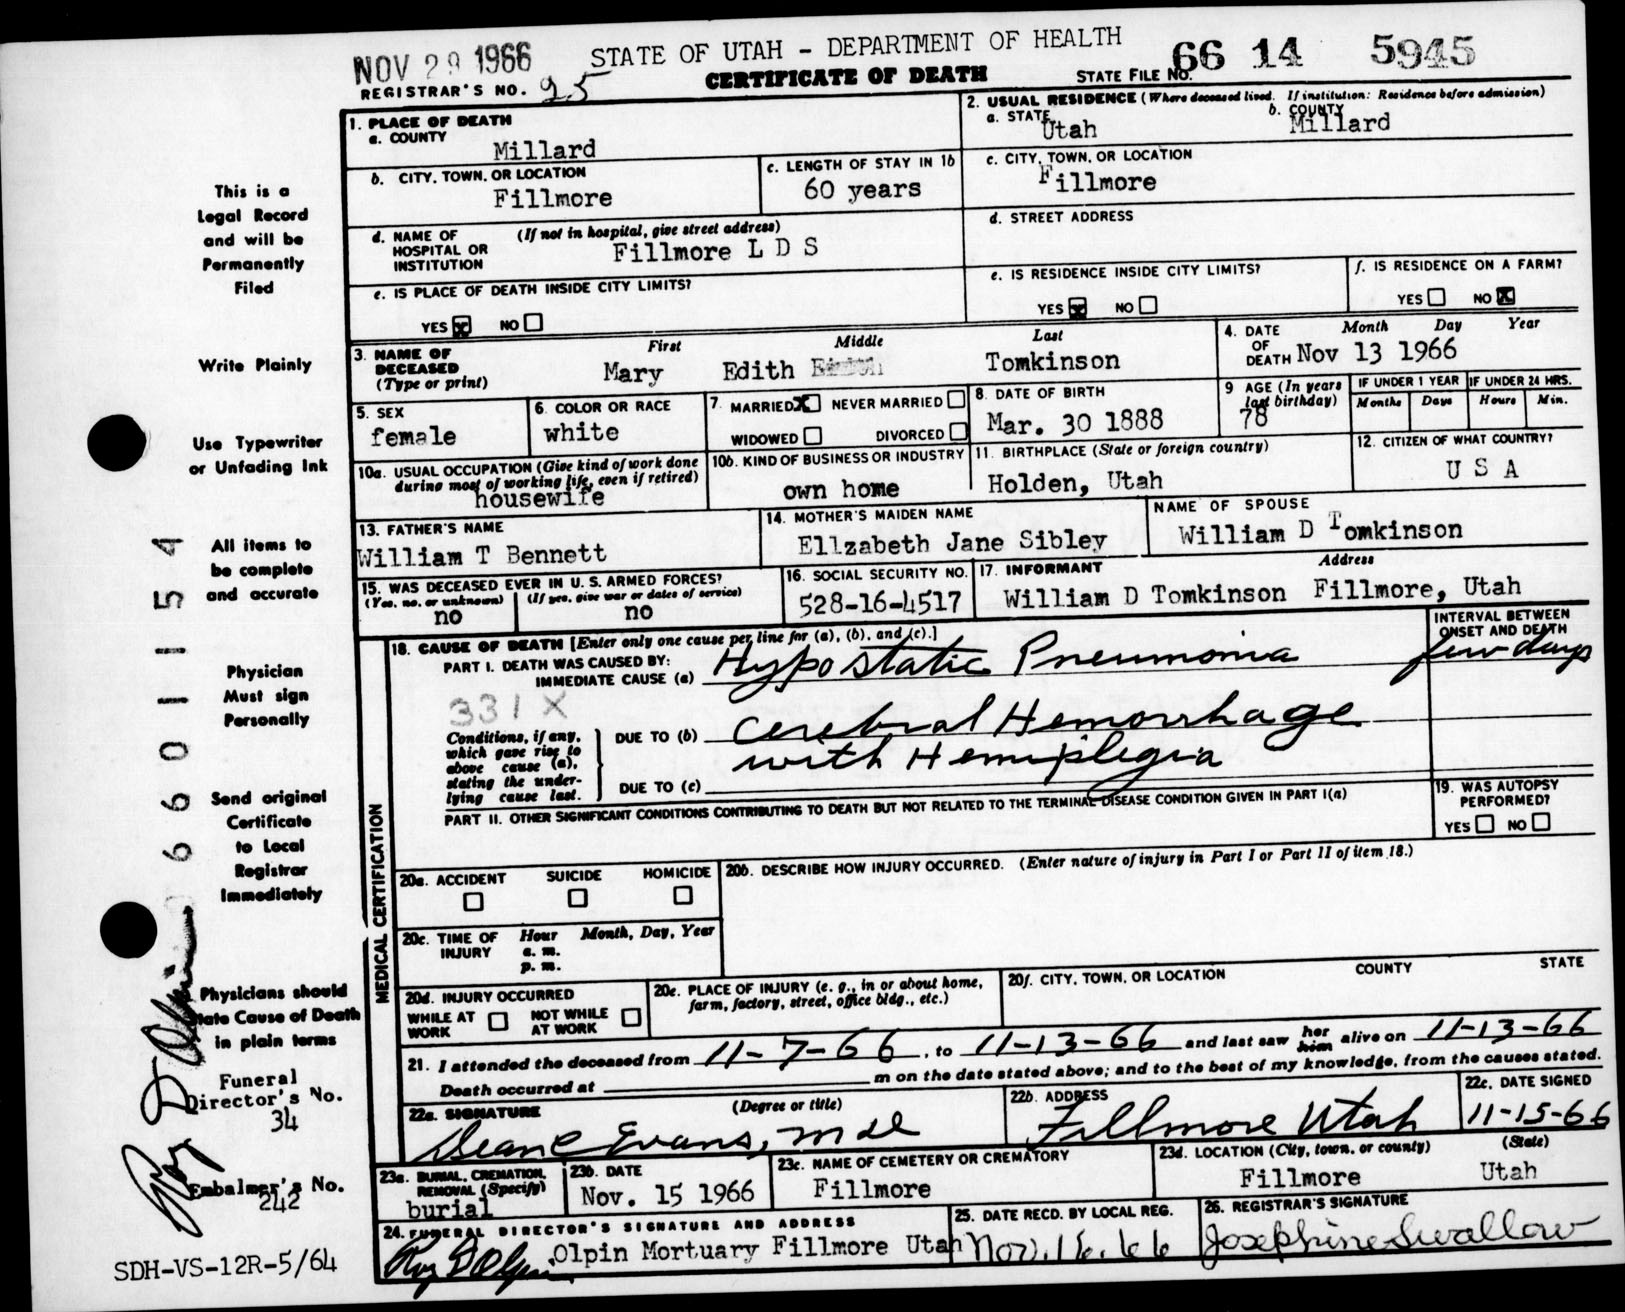 NOV 29 1966
STATE OF UTAH - DEPARTMENT OF HEALTH
66 14 5945
REGISTRAR'S NO. 25
CERTIFICATE OF DEATH
STATE FILE NO.
1. PLACE OF DEATH
a. COUNTY
Millard
2. USUAL RESIDENCE (Where deceased lived. If institution: Residence before admission)
a. STATE
Utah
b. COUNTY
Millard
b. CITY, TOWN, OR LOCATION
Fillmore
c. LENGTH OF STAY IN 1b
60 years
c. CITY, TOWN, OR LOCATION
Fillmore
d. NAME OF HOSPITAL OR INSTITUTION
(If not in hospital, give street address)
Fillmore L D S
d. STREET ADDRESS
e. IS PLACE OF DEATH INSIDE CITY LIMITS?
YES X NO
e. IS RESIDENCE INSIDE CITY LIMITS?
YES X NO
f. IS RESIDENCE ON A FARM?
YES NO X
3. NAME OF DECEASED
(Type or print)
First Middle Last
Mary Edith Tomkinson
4. DATE OF DEATH
Month Day Year
Nov 13 1966
5. SEX
female
6. COLOR OR RACE
white
7. MARRIED X NEVER MARRIED
WIDOWED DIVORCED
8. DATE OF BIRTH
Mar. 30 1888
9 AGE (In years last birthday)
78
IF UNDER 1 YEAR
Months Days
IF UNDER 24 HRS.
Hours Min.
10a. USUAL OCCUPATION (Give kind of work done during most of working life, even if retired)
housewife
10b. KIND OF BUSINESS OR INDUSTRY
own home
11. BIRTHPLACE (State or foreign country)
Holden, Utah
12. CITIZEN OF WHAT COUNTRY?
U S A
13. FATHER'S NAME
William T Bennett
14. MOTHER'S MAIDEN NAME
Ellzabeth Jane Sibley
NAME OF SPOUSE
William D Tomkinson
15. WAS DECEASED EVER IN U. S. ARMED FORCES?
(Yes, no, or unknown)
no
(If yes, give war or dates of service)
no
16. SOCIAL SECURITY NO.
528-16-4517
17. INFORMANT Address
William D Tomkinson Fillmore, Utah
MEDICAL CERTIFICATION
18. CAUSE OF DEATH [Enter only one cause per line for (a), (b), and (c).]
INTERVAL BETWEEN ONSET AND DEATH
PART I. DEATH WAS CAUSED BY:
IMMEDIATE CAUSE (a) Hypostatic Pneumonia few days
331 X
Conditions, if any, which gave rise to above cause (a), stating the underlying cause last.
DUE TO (b) Cerebral Hemorrhage
with Hemiplegia
DUE TO (c)
PART II. OTHER SIGNIFICANT CONDITIONS CONTRIBUTING TO DEATH BUT NOT RELATED TO THE TERMINAL DISEASE CONDITION GIVEN IN PART I(a)
19. WAS AUTOPSY PERFORMED?
YES NO
20a. ACCIDENT SUICIDE HOMICIDE
20b. DESCRIBE HOW INJURY OCCURRED. (Enter nature of injury in Part I or Part II of item 18.)
20c. TIME OF INJURY
Hour Month, Day, Year
a. m.
p. m.
20d. INJURY OCCURRED
WHILE AT WORK NOT WHILE AT WORK
20e. PLACE OF INJURY (e. g., in or about home, farm, factory, street, office bldg., etc.)
20f. CITY, TOWN, OR LOCATION COUNTY STATE
21. I attended the deceased from 11-7-66, to 11-13-66 and last saw her him alive on 11-13-66
Death occurred at m on the date stated above; and to the best of my knowledge, from the causes stated.
22a. SIGNATURE (Degree or title)
Dean C Evans, M.D.
22b. ADDRESS
Fillmore Utah
22c. DATE SIGNED
11-15-66
23a. BURIAL, CREMATION, REMOVAL (Specify)
burial
23b. DATE
Nov. 15 1966
23c. NAME OF CEMETERY OR CREMATORY
Fillmore
23d. LOCATION (City, town, or county) (State)
Fillmore Utah
24. FUNERAL DIRECTOR'S SIGNATURE AND ADDRESS
Roy D Olpin Olpin Mortuary Fillmore Utah
25. DATE RECD. BY LOCAL REG.
Nov. 16. 66
26. REGISTRAR'S SIGNATURE
Josephine Swallow
This is a
Legal Record
and will be
Permanently
Filed
Write Plainly
Use Typewriter
or Unfading Ink
All items to
be complete
and accurate
Physician
Must sign
Personally
Send original
Certificate
to Local
Registrar
Immediately
Physicians should
State Cause of Death
in plain terms
Funeral
Director's No.
34
Embalmer's No.
242
SDH-VS-12R-5/64
66 01 11 54
Roy D Olpin